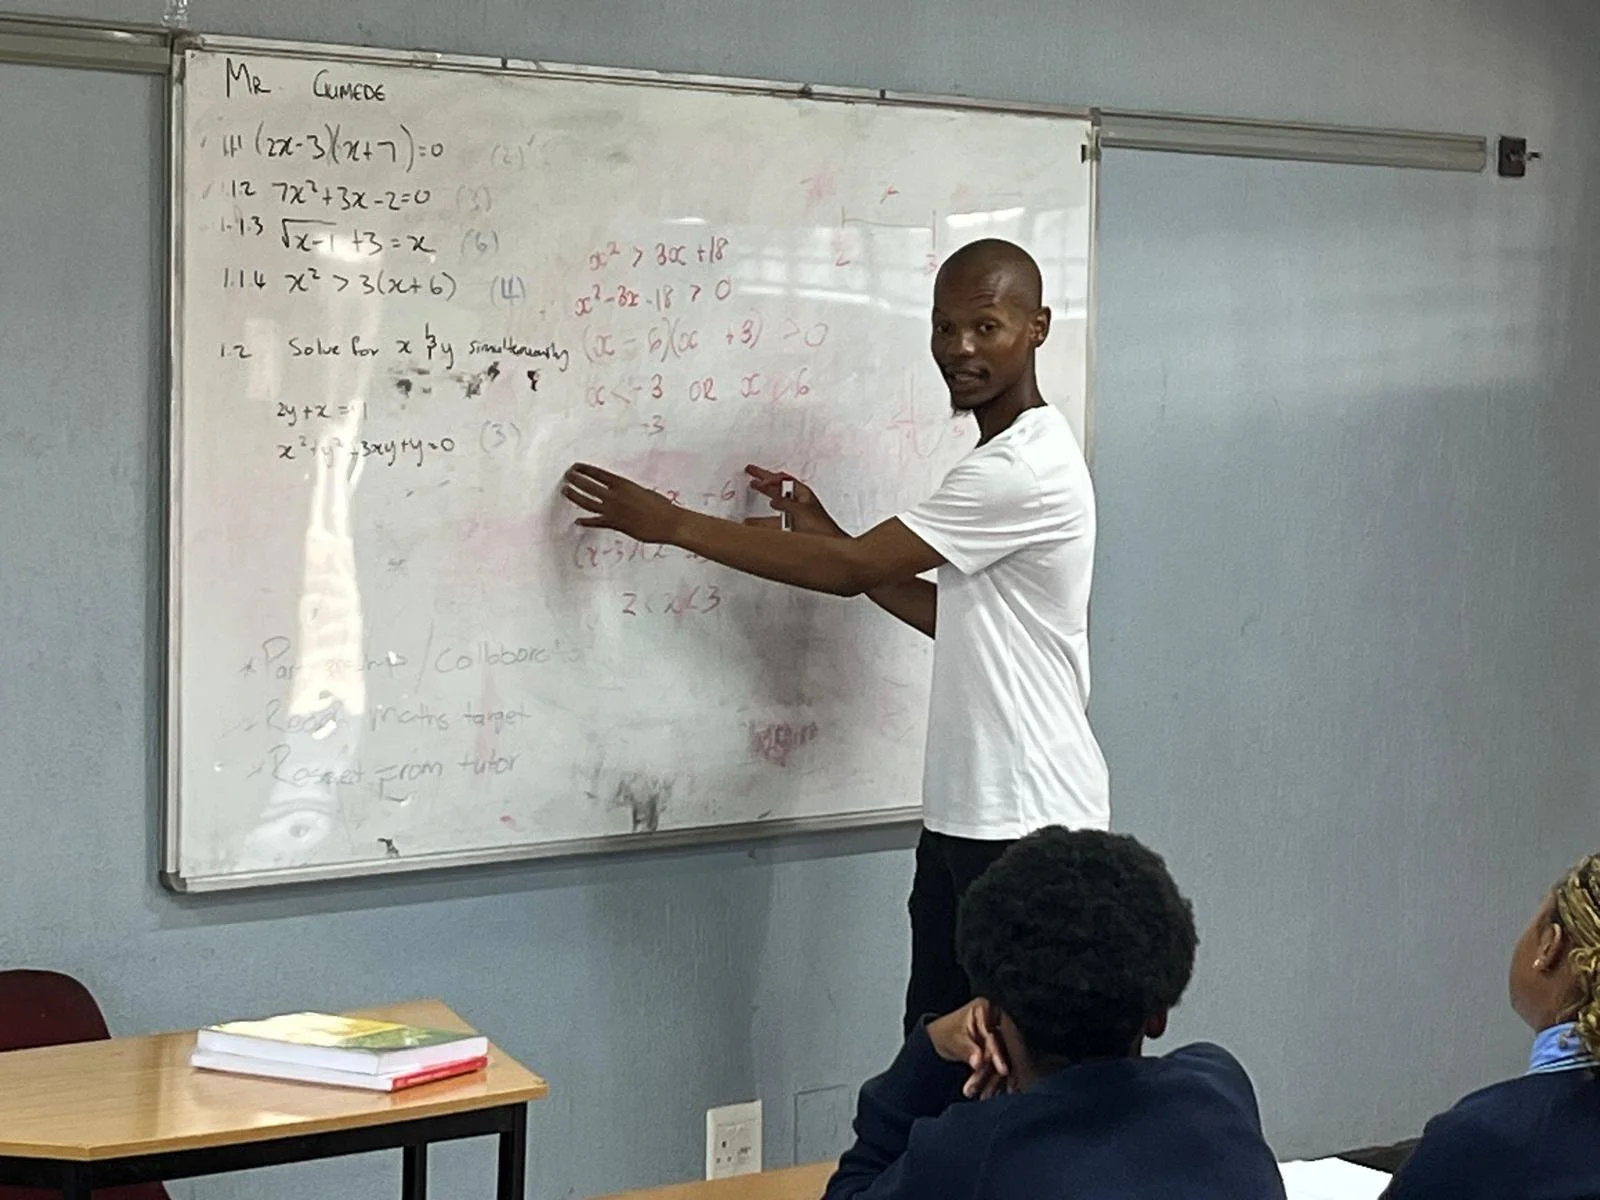 MR. GUMEDE
1.1.1 (2x-3)(x+7)=0 (2)
1.1.2 7x²+3x-2=0 (3)
1.1.3 √x-1 +3=x (6)
1.1.4 x² > 3(x+6) (4)
1.2 Solve for x & y simultaneously
2y+x=1
x²+y²+3xy+y=0 (3)
x² > 3x+18
x²-3x-18 > 0
(x-6)(x+3) >0
x<-3 OR x 6
-3
x +6
(x-3)(x
2<x<3
2 3
/Collaborat
maths target
From tutor